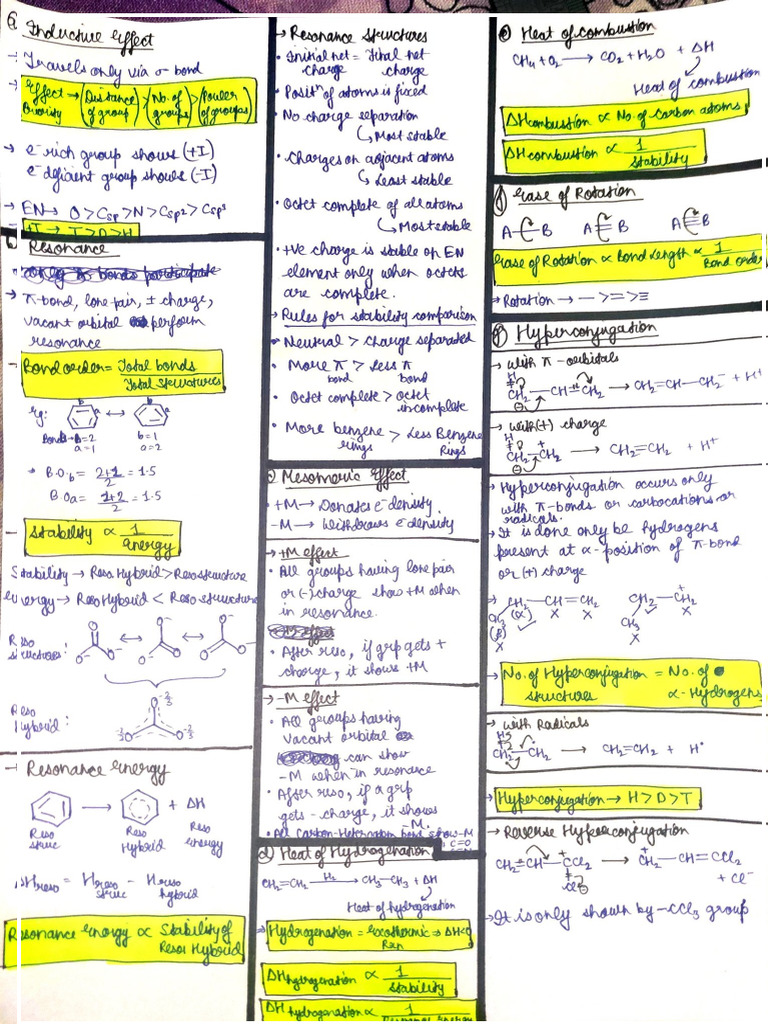 Inductive Effect
→ Travels only via σ bond
→ Effect → (Distance of group) > (No. of groups) > (Power of groups)
Priority
→ e⁻ rich group shows (+I)
e⁻ deficient group shows (-I)
→ EN → O > Csp > N > Csp² > Csp³
→ +I → T > D > H
Resonance
→ π-bond, lone pair, ± charge,
vacant orbital perform
resonance
→ Bond order = Total bonds
Total structures
eg:
b
a
b
a
Bonds → b=2
a=1
b=1
a=2
B.O.b = 2+1/2 = 1.5
B.Oa = 1+2/2 = 1.5
→ Stability ∝ 1/Energy
Stability → Reso Hybrid > Reso structure
Energy → Reso Hybrid < Reso structure
Reso
structures:
O O⁻ O⁻
⁻O O⁻ O O
Reso
Hybrid:
O -2/3
-2/3 O O -2/3
→ Resonance energy
→ + ΔH
Reso
struc
Reso
Hybrid
Reso
Energy
ΔHreso = Hreso struc - Hreso hybrid
Resonance Energy ∝ Stability of
Reso Hybrid
→ Resonance structures
• Initial net charge = Final net charge
• Positⁿ of atoms is fixed
• No charge separation
↳ Most stable
• Charges on adjacent atoms
↳ Least stable
• Octet complete of all atoms
↳ Most stable
• +ve charge is stable on EN
element only when octets
are complete.
→ Rules for stability comparison
• Neutral > Charge separated
• More π bond > Less π bond
• Octet complete > octet incomplete
• More benzene rings > Less Benzene Rings
c) Mesomeric Effect
+M → Donates e⁻ density
-M → Withdraws e⁻ density
→ +M effect
• All groups having lone pair
or (-) charge show +M when
in resonance.
• After reso, if grp gets +
charge, it shows +M
→ -M effect
• All groups having
vacant orbital
can show
-M when in resonance
• After reso, if a grp
gets - charge, it shows
-M.
• All Carbon-Heteroatom bond show -M
C=O
d) Heat of Hydrogenation
CH₂=CH₂ H₂→ CH₃-CH₃ + ΔH
Heat of hydrogenation
→ Hydrogenation = Exothermic Rxn ⇒ ΔH<0
ΔHhydrogenation ∝ 1/Stability
ΔHhydrogenation ∝ 1/Resonance Energy
e) Heat of combustion
CH₄ + O₂ → CO₂ + H₂O + ΔH
Heat of combustion
ΔHcombustion ∝ No. of carbon atoms
ΔHcombustion ∝ 1/Stability
Ease of Rotation
A-B A=B A≡B
Ease of Rotation ∝ Bond Length ∝ 1/Bond order
→ Rotation → - > = > ≡
Hyperconjugation
→ with π-orbitals
H
CH₂-CH=CH₂ → CH₂=CH-CH₂⁻ + H⁺
→ with (+) charge
H
CH₂-CH₂ → CH₂=CH₂ + H⁺
→ Hyperconjugation occurs only
with π-bonds or carbocations or
radicals.
→ It is done only be hydrogens
present at α-position of π-bond
or (+) charge
CH₂-CH=CH₂
CH₃ (α) X X
(β)
X
CH₂-CH₂⁺
CH₃ X
X
→ No. of Hyperconjugation structures = No. of α-Hydrogens
→ with Radicals
CH₂-CH₂ → CH₂=CH₂ + H•
→ Hyperconjugation → H > D > T
→ Reverse Hyperconjugation
CH₂=CH-CCl₂ → CH₂⁺-CH=CCl₂
Cl
+ Cl⁻
→ It is only shown by -CCl₃ group